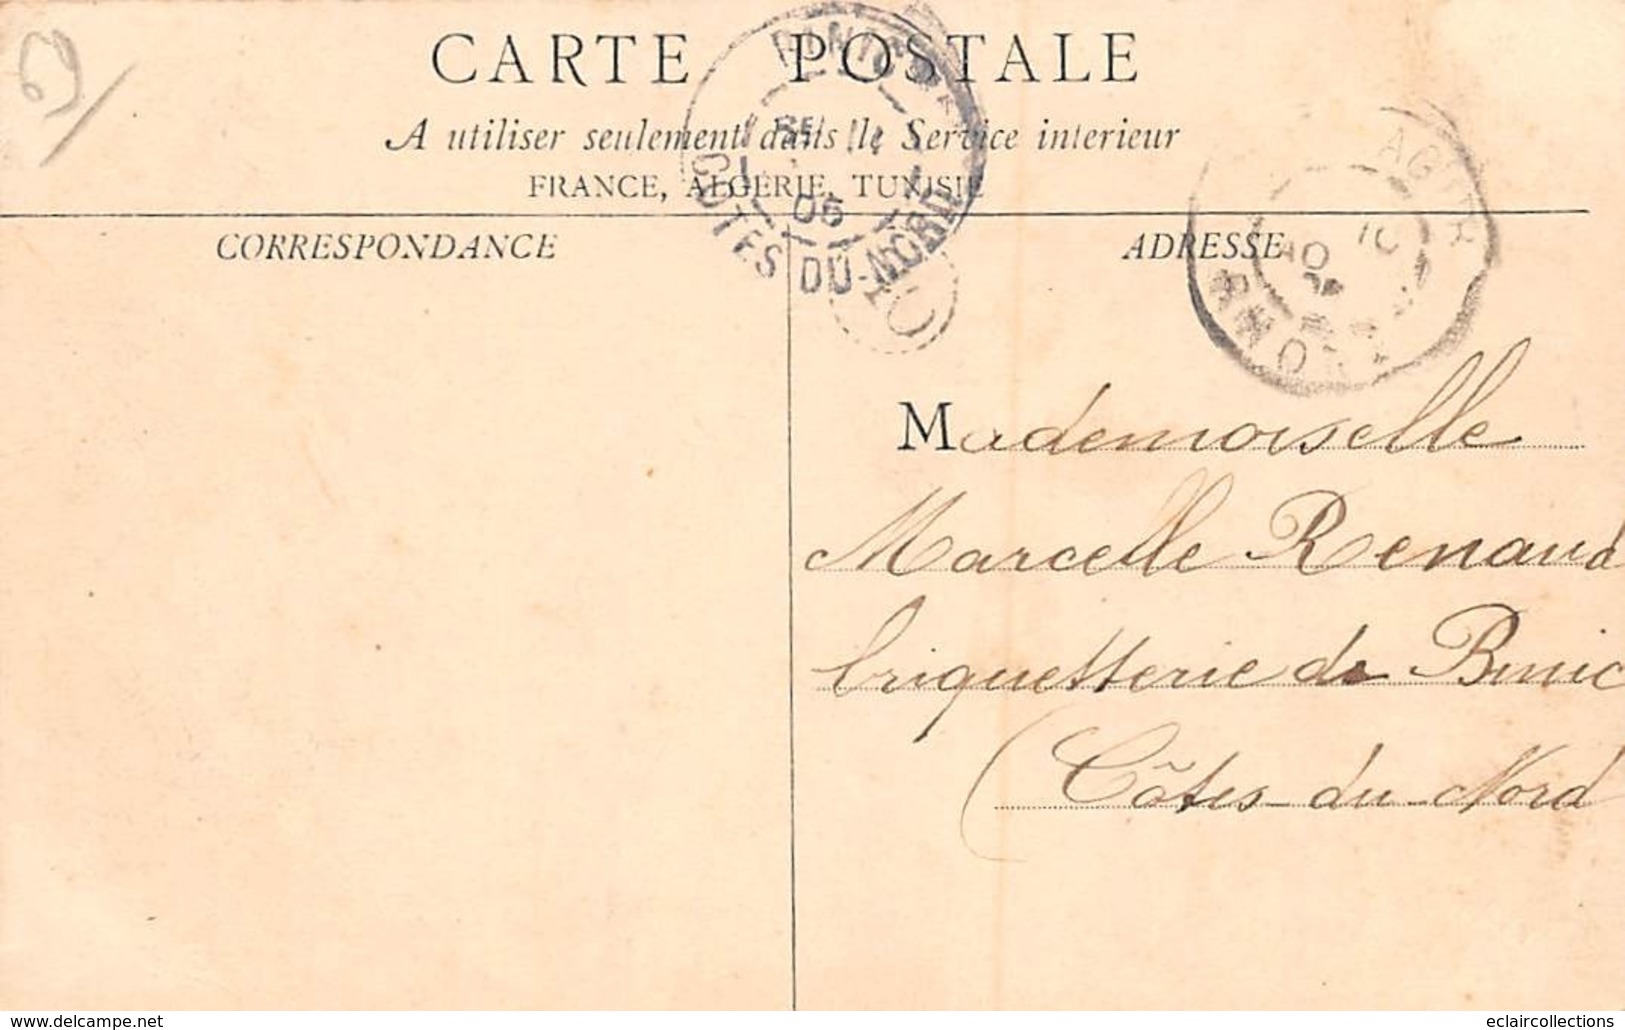 69
CARTE POSTALE
A utiliser seulement dans le Service interieur
FRANCE, ALGÉRIE, TUNISIE
CORRESPONDANCE
ADRESSE
05
COTES DU-NORD
10
Mademoiselle
Marcelle Renaud
briquetterie de Binic
(Côtes-du-Nord
www.delcampe.net
eclaircollections